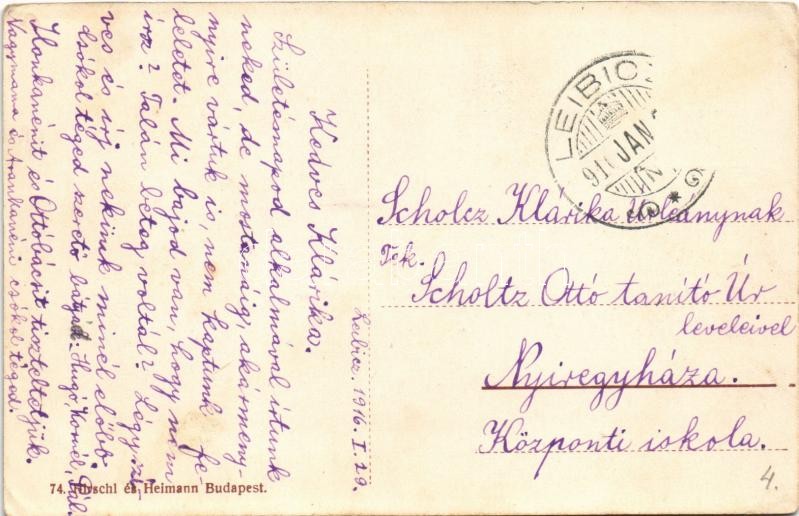 Leibicz. 1916. I. 29.
Kedves Klárika.
Születésnapod alkalmával irtunk
neked, de mostanáig, akármeny-
nyire vártuk is, nem kaptunk fe-
leletet. Mi bajod van, hogy nem
irsz? Talán beteg voltál? Légy szi-
ves és irj nekünk minél előbb.
Csókol téged szerető bátyád: Hugó, Kornél, Pál.
Ilonkanénit és Ottobácsit tiszteltetjük.
Nagymama és Arankanéni csókol téged.
Scholcz Klárika Urleánynak
Tek.
Scholtz Ottó tanító Úr
leveleivel
Nyiregyháza.
Központi iskola.
LEIBIC
916 JAN
74. Hirschl és Heimann Budapest.
4.